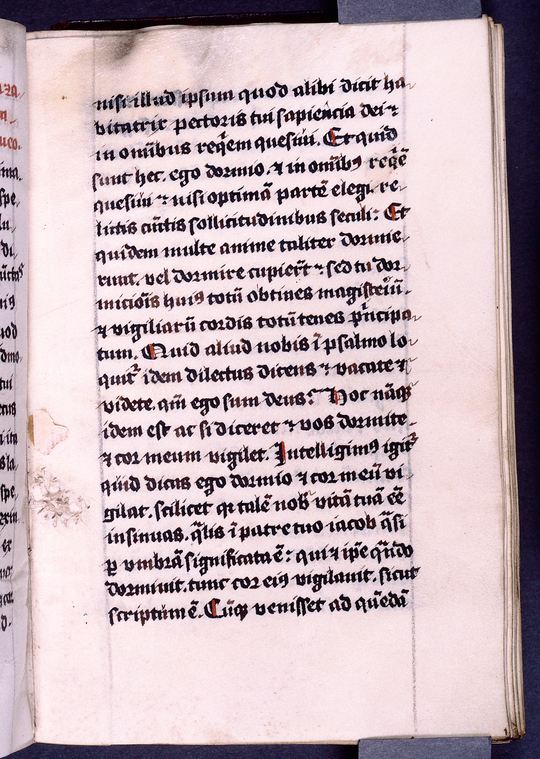 nisi illud ipsum quod alibi dicit ha-
bitatrix pectoris tui sapiencia dei ⁊
in om̄ibus reqͤem quesiui. Et quid
sunt hec. ego dormio. ⁊ in om̄ibꝰ reqͤē
quesiui ⁊ nisi optimā partē elegi. re-
lictis cūctis sollicitudinibus seculi: Et
quidem multe anime taliter dormie-
runt. vel dormire cupierūt ⁊ sed tu dor-
micioīs huiꝰ totū obtines magisteriū.
⁊ vigiliarū cordis totū tenes pͥncipa-
tum. Quid aliud nobis ī psalmo lo-
quitᷣ idem dilectus dicens ⁊ vacate ⁊
videte. qm̄ ego sum deus: Hoc nāqꝫ
idem est ac si diceret ⁊ vos dormite-
⁊ cor meum vigilet. Intelligimꝰ igitᷣ
quid dicas ego dormio ⁊ cor meū vi-
gilat. scilicet qꝛ talē nob̄ vitā tuā eē
insinuas. q̄lis ī patre tuo iacob q̄si
ꝑ vmbrā significata ē: qui ⁊ ip̄e qn̄do
dormiuit. tunc cor eiꝰ vigilauit. sicut
scriptum ē. Cūqꝫ venisset ad quēdā